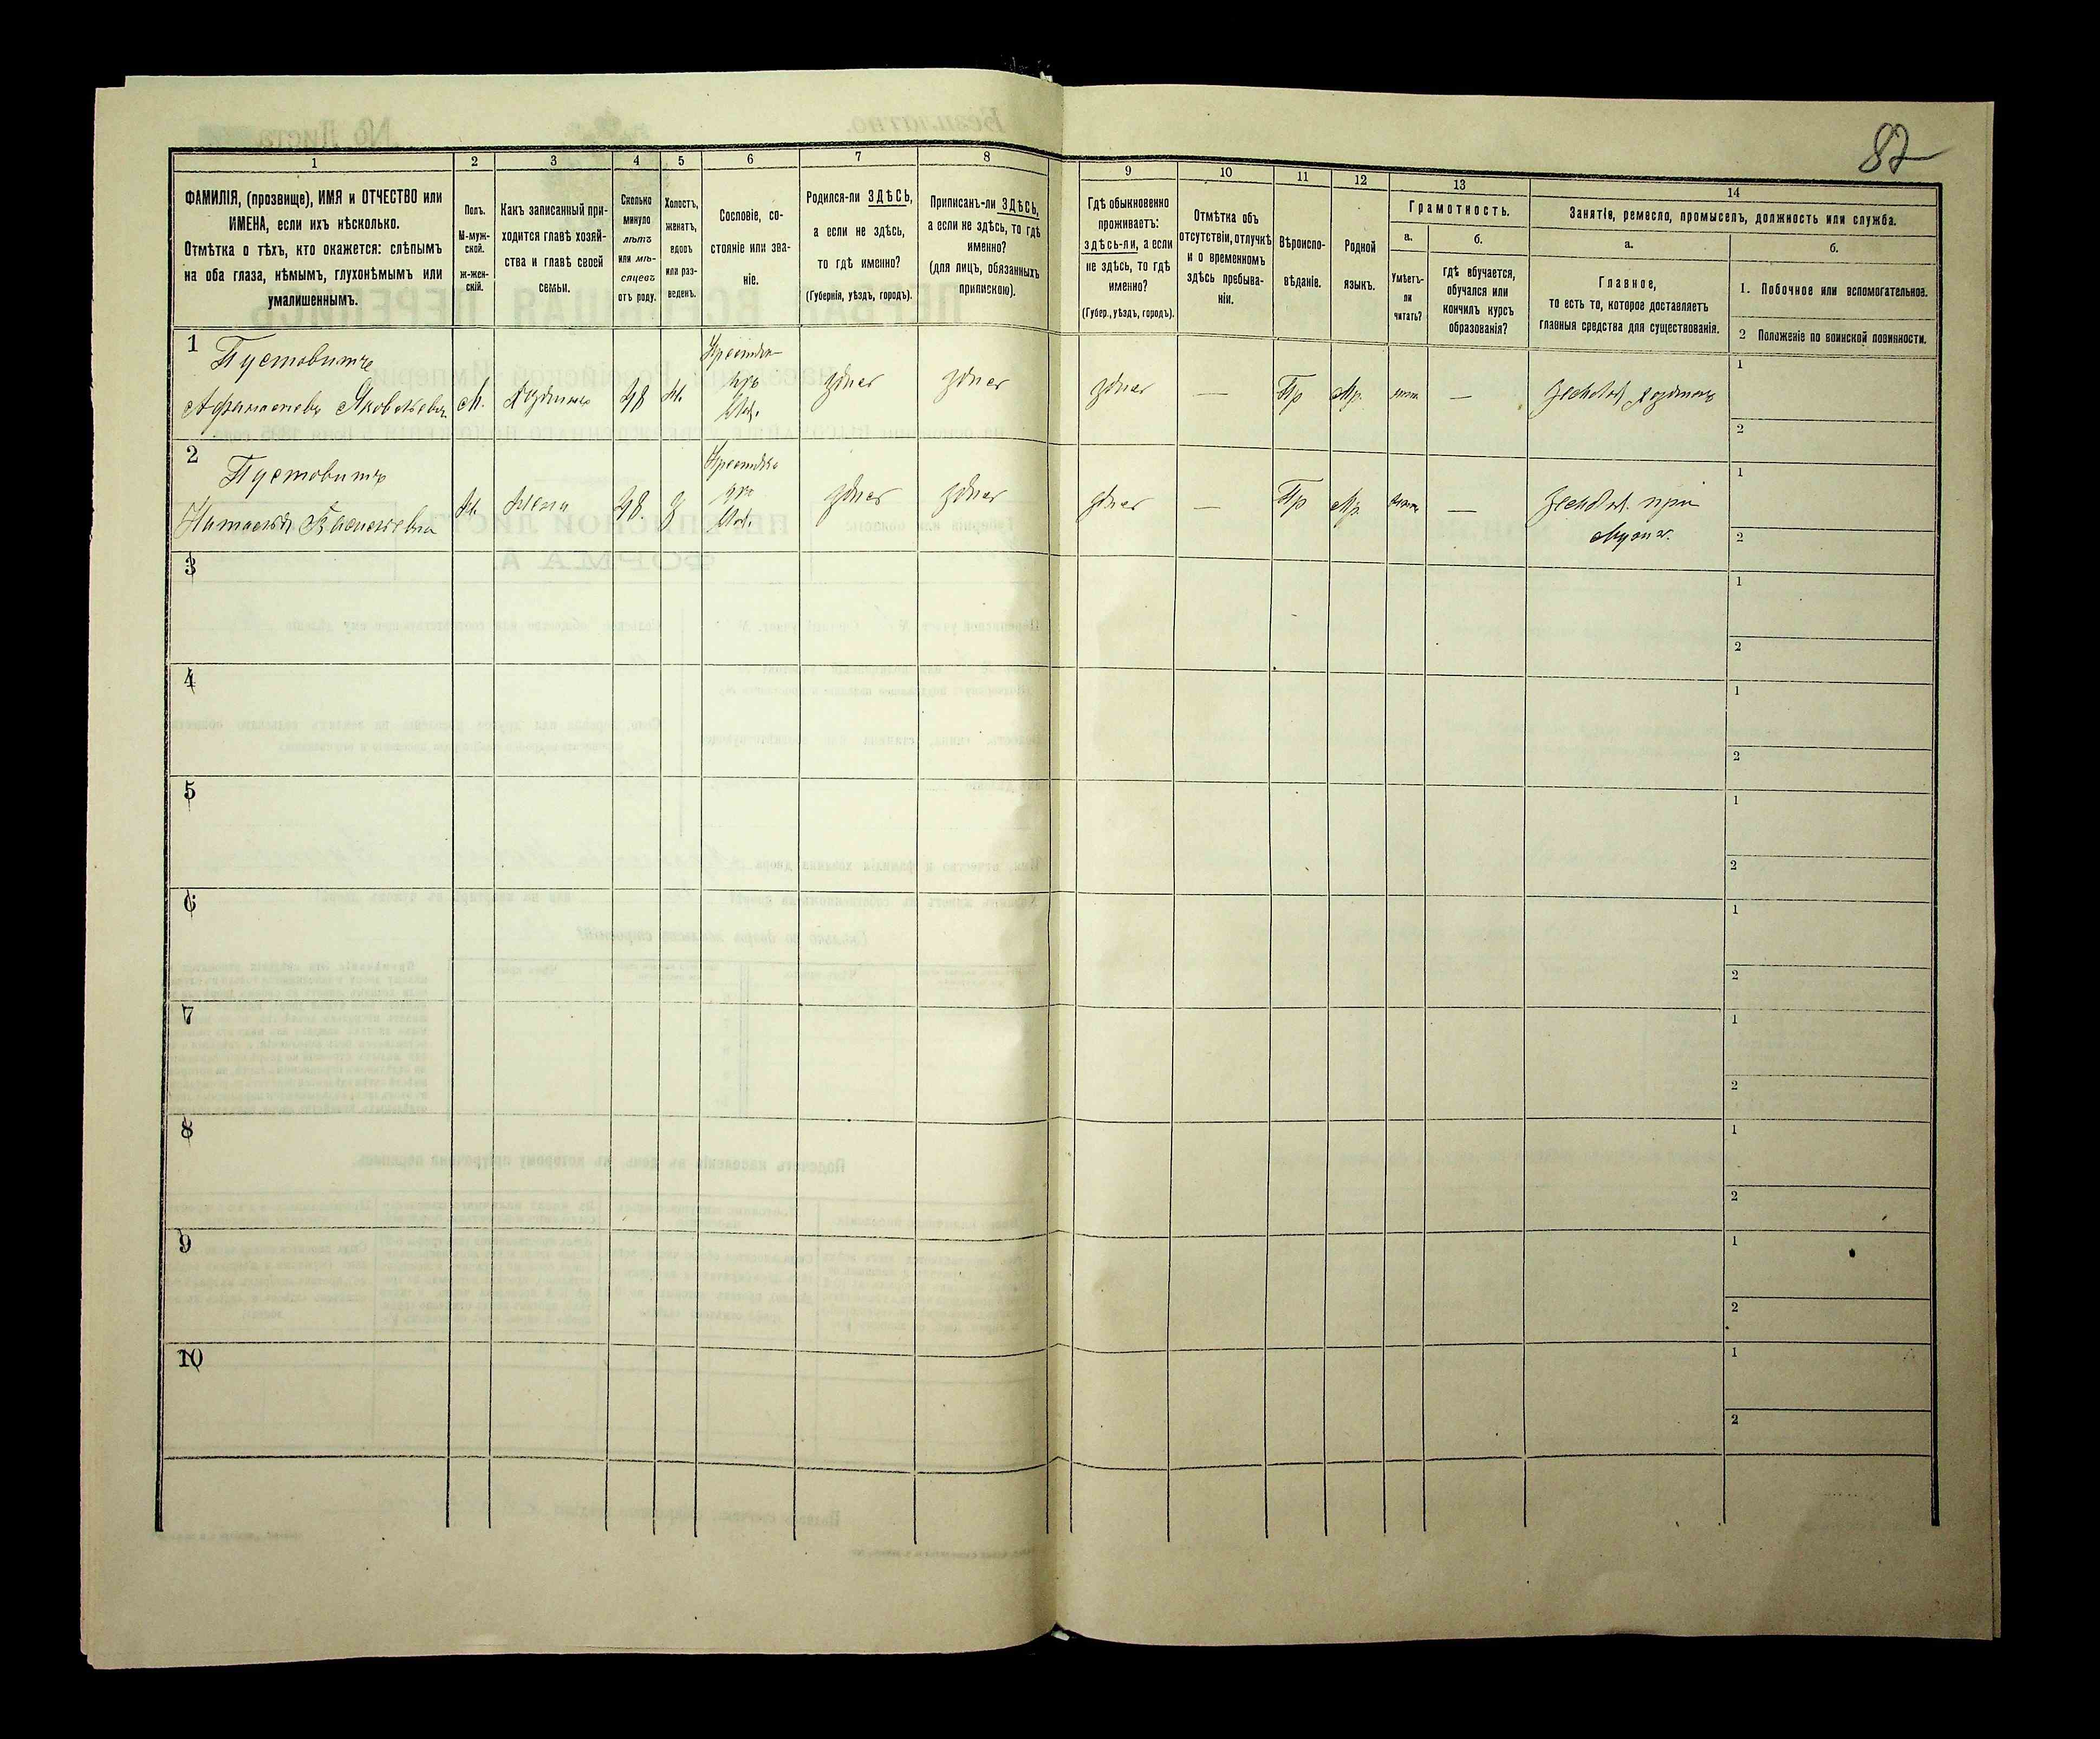 87
1
2
3
4
5
6
7
8
9
10
11
12
13
14
ФАМИЛІЯ, (прозвище), ИМЯ и ОТЧЕСТВО или
ИМЕНА, если ихъ нѣсколько.
Отмѣтка о тѣхъ, кто окажется: слѣпымъ
на оба глаза, нѣмымъ, глухонѣмымъ или
умалишеннымъ.
Полъ.
М-муж-
ской.
ж-жен-
скій.
Какъ записанный при-
ходится главѣ хозяй-
ства и главѣ своей
семьи.
Сколько
минуло
лѣтъ
или мѣ-
сяцевъ
отъ роду.
Холостъ,
женатъ,
вдовъ
или раз-
веденъ.
Сословіе, со-
стояніе или зва-
ніе.
Родился-ли ЗДѢСЬ,
а если не здѣсь,
то гдѣ именно?
(Губернія, уѣздъ, городъ).
Приписанъ-ли ЗДѢСЬ,
а если не здѣсь, то гдѣ
именно?
(для лицъ, обязанныхъ
припискою).
Гдѣ обыкновенно
проживаетъ:
здѣсь-ли, а если
не здѣсь, то гдѣ
именно?
(Губер., уѣздъ, городъ).
Отмѣтка объ
отсутствіи, отлучкѣ
и о временномъ
здѣсь пребыва-
ніи.
Вѣроиспо-
вѣданіе.
Родной
языкъ.
Грамотность.
а.
Умѣетъ-
ли
читать?
б.
гдѣ обучается,
обучался или
кончилъ курсъ
образованія?
Занятіе, ремесло, промыселъ, должность или служба.
а.
Главное,
то есть то, которое доставляетъ
главныя средства для существованія.
б.
1. Побочное или вспомогательное.
2 Положеніе по воинской повинности.
1
Пустовитъ
Яковлевъ
М.
Хозяинъ
48
Ж.
Крестья-
здѣсь
здѣсь
здѣсь
—
Пр
Мр.
—
хозяинъ
1
2
2
Пустовитъ
Наталья Васильевна
Ж.
Жена
48.
З
здѣсь
здѣсь
здѣсь
—
Пр
Мр.
—
при
мужѣ.
1
2
3
1
2
4
1
2
5
1
2
6
1
2
7
1
2
8
1
2
9
1
2
10
1
2